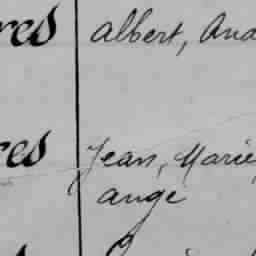 res albert, And
res Jean, Marie,
ange